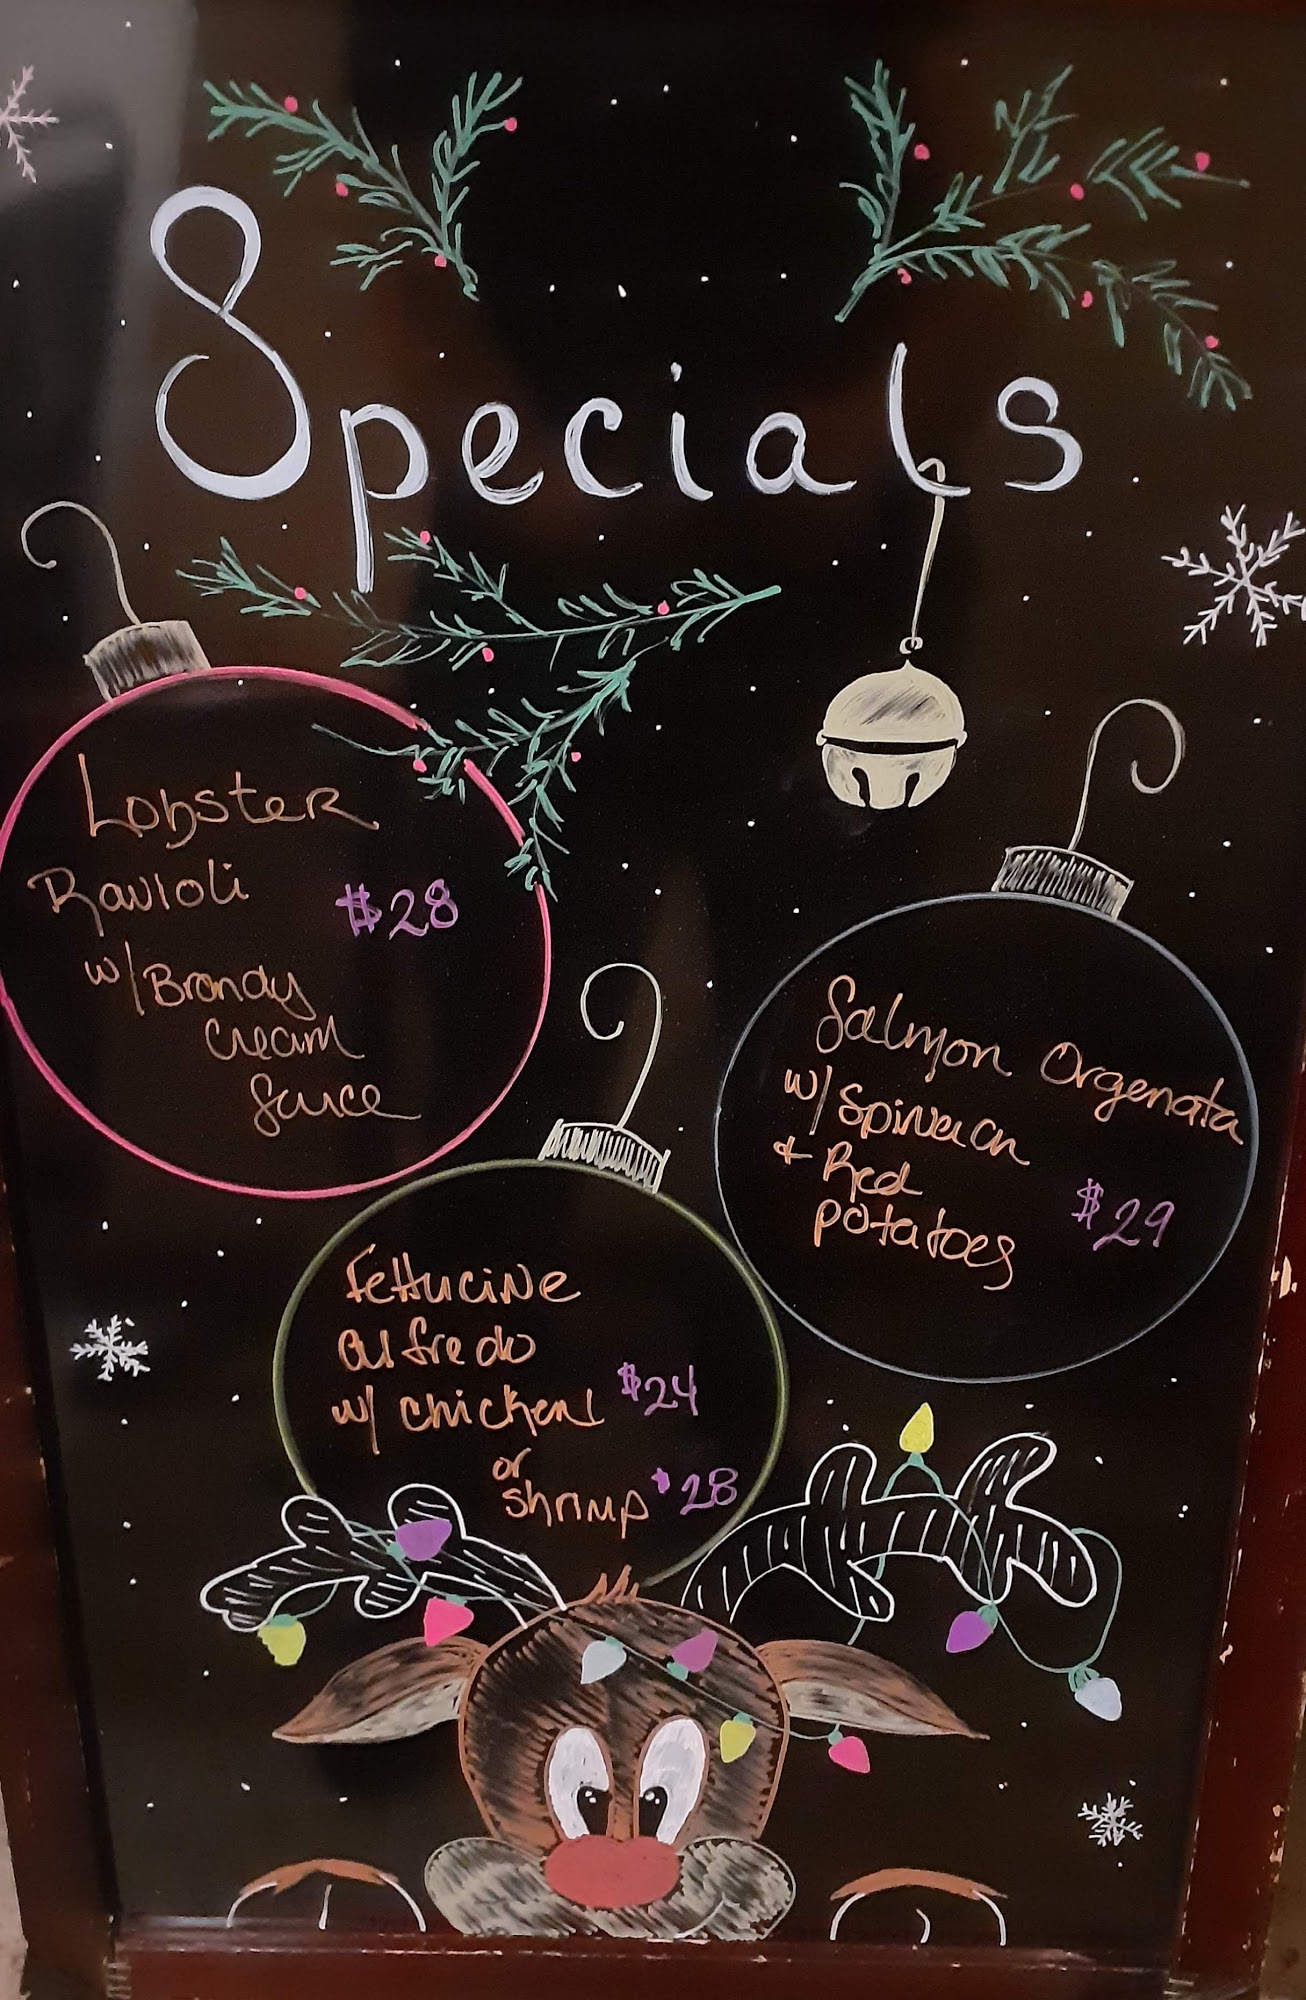 Specials
Lobster
Ravioli $28
w/ Brandy
Cream
Sauce
Salmon Orgenata
w/ Spinach
+ Red
potatoes $29
Fettucine
alfredo
w/ chicken $24
or
shrimp $28